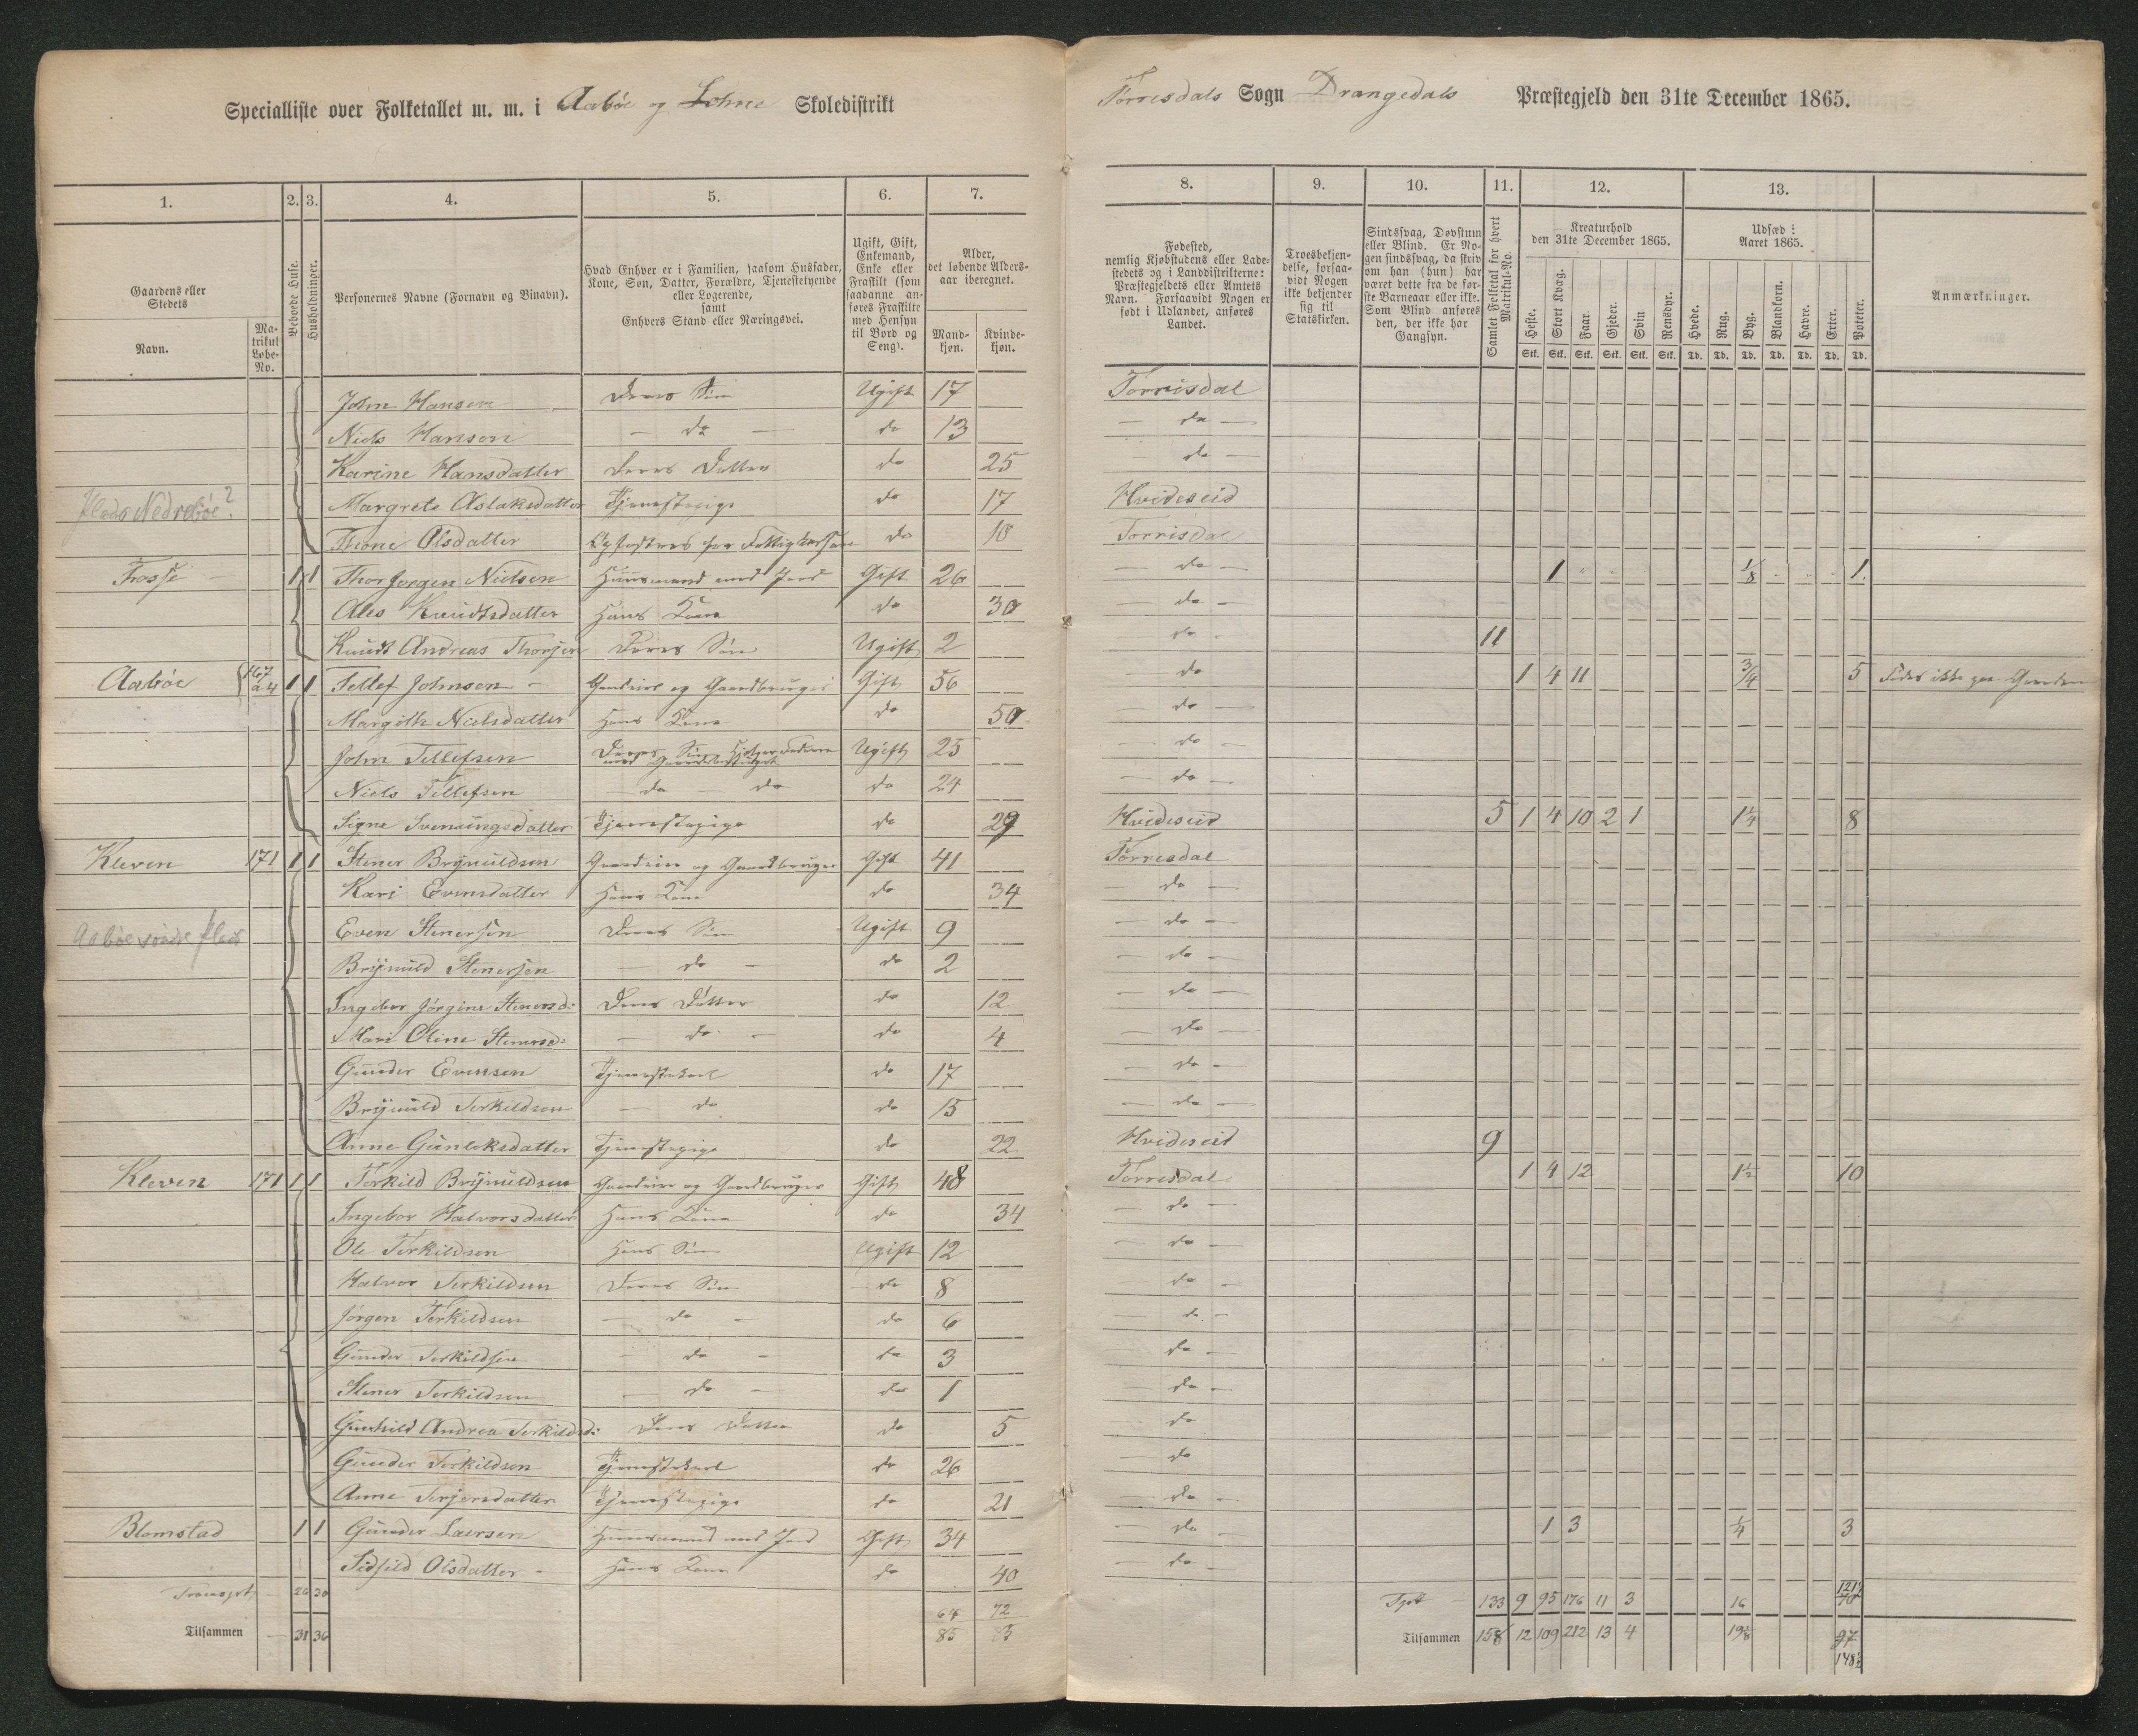 Specialliste over Folketallet m. m. i Aabøe og Lohne Skoledistrikt
Torrisdals Sogn Drangedals Præstegjeld den 31te December 1865.
1. 2. 3. 4. 5. 6. 7. 8. 9. 10. 11. 12. 13.
Gaardens eller Stedets
Navn.
Matrikul Løbe-No.
Beboede Huse.
Husholdninger.
Personernes Navne (Fornavn og Binavn).
Hvad Enhver er i Familien, saasom Husfader, Kone, Søn, Datter, Forældre, Tjenestetyende eller Logerende, samt Enhvers Stand eller Næringsvei.
Ugift, Gift, Enkemand, Enke eller Fraskilt (som saadanne anføres Fraskilte med Hensyn til Bord og Seng).
Alder, det løbende Alders-aar iberegnet.
Mand-kjøn. Kvinde-kjøn.
Fødested, nemlig Kjøbstadens eller Lade-stedets og i Landdistrikterne: Præstegjeldets eller Amtets Navn. Forsaavidt Nogen er født i Udlandet, anføres Landet.
Troesbekjen-delse, forsaa-vidt Nogen ikke bekjender sig til Statskirken.
Sindssvag, Døvstum eller Blind. Er No-gen sindssvag, da skriv om han (hun) har været dette fra de før-ste Barneaar eller ikke. Som Blind anføres den, der ikke har Gangsyn.
Samlet Folketal for hvert Matrikul-No.
Kreaturhold den 31te December 1865.
Heste. Stort Kvæg. Faar. Gjeder. Svin. Rensdyr.
Stk. Stk. Stk. Stk. Stk. Stk.
Udsæd i Aaret 1865.
Hvede. Rug. Byg. Blandkorn. Havre. Erter. Poteter.
Td. Td. Td. Td. Td. Td. Td.
Anmærkninger.
John Hansen Deres Søn Ugift 17 Torrisdal
Niels Hansen — do — do 13 — do —
Karine Hansdatter Deres Datter do 25 — do —
Plads Nedrebøe? Margrete Aslaksdatter Tjenestepige do 17 Hvideseid
Thone Olsdatter do 10 Torrisdal
Fosse 1 1 Thor Jørgen Nielsen Huusmand med Jord Gift 26 — do — 1 1/8 1
Knudtsdatter Hans Kone do 30 — do —
Knudt Andreas Thorjen Deres Søn Ugift 2 do 11
Aabøe 167 a 4 1 1 Tellef Johnsen Gaardeier og Gaardbruger Gift 56 do 1 4 11 3/4 5
Margith Nielsdatter Hans Kone do 50 — do —
John Tellefsen Deres Søn, Ugift 25 — do —
Niels Tellefsen do do do 24 — do —
Signe Svenungsdatter Tjenestepige do 29 Hvideseid 5 1 4 10 2 1 1 1/4 8
Kleven 171 1 1 Stener Brynuldsen Gaardeier og Gaardbruger Gift 41 Torresdal
Kari Evensdatter Hans Kone do 34 — do —
Aabøe søndre plads Even Stenersen Deres Søn Ugift 9 — do —
Brynuld Stenersen — do — do 2 — do —
Ingebor Jørgine Stenersd: Deres Datter do 12 — do —
Mari Oline Stenersd: — do — do 4 — do —
Gunder Evensen Tjenestekarl do 17 — do —
Brynuld Terkildsen — do do 15 — do —
Anne Gunleksdatter Tjenestepige do 22 Hvideseid 9
Kleven 171 1 1 Terkild Brynuldsen Gaardeier og Gaardbruger Gift 48 Torresdal 1 4 12 1 1/2 10
Ingebor Halvorsdatter Hans Kone do 34 — do —
Ole Terkildsen Hans Søn Ugift 12 — do —
Halvor Terkildsen Deres Søn do 8 do —
Jørgen Terkildsen — do — do 6 do —
Gunder Terkildsen — do — do 3 — do —
Stener Terkildsen — do — do 1 — do —
Gunhild Andrea Terkildsd: Deres Datter do 5 do
Gunder Terkildsen Tjenestekarl do 26 do
Anne Terjersdatter Tjenestepige do 21 — do —
Blomstad 1 1 Gunder Laersen Huusmand med Jord Gift 34 — do — 1 3 1/4 3
Olsdatter Hans Kone do 40 — do —
Transport 26 30 64 72 Tpt 133 9 95 176 11 3 16
Tilsammen 31 36 85 85 Tilsammen 158 12 109 212 13 4 19 1/8 97
148 1/2